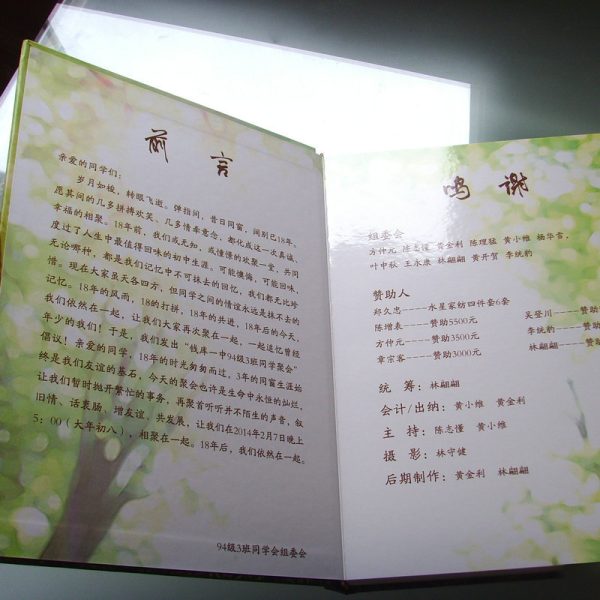 前 言
亲爱的同学们：
岁月如梭，转眼飞逝。弹指间，昔日同窗，阔别已18年。
愿其间的几多拼搏欢笑、几多情牵意念，都化成这一次真诚、
幸福的相聚。18年前，我们或无知、或憧憬的欢聚一堂，共同
度过了人生中最值得回味的初中生涯。可能懊悔，可能回味，
无论哪种，都是我们记忆中不可抹去的回忆，我们都无比珍
惜。现在大家虽天各四方，但同学之间的情谊永远是抹不去的
记忆。18年的风雨，18的打拼，18年的共进，18年后的今天，
我们依然在一起，让我们大家再次聚在一起，一起追忆曾经
年少的我们！于是，我们发出“钱库一中94级3班同学聚会”
倡议！亲爱的同学，18年的时光匆匆而过，3年的同窗生涯始
终是我们友谊的基石，今天的聚会也许是生命中永恒的灿烂，
让我们暂时抛开繁忙的事务，再聚首听听并不陌生的声音，叙
旧情、话衷肠、增友谊、共发展，让我们在2014年2月7日晚上
5：00（大年初八），相聚在一起。18年后，我们依然在一起。
94级3班同学会组委会
鸣 谢
组委会
方仲元 陈志慬 黄金利 陈理猛 黄小维 杨华言，
叶中秋 王永康 林翩翩 黄开贺 李统豹
赞助人
郑久忠----水星家纺四件套6套 吴登川----赞助
陈增表----赞助5500元 李统豹----赞助
方仲元----赞助3500元 林翩翩----赞助
章宗客----赞助3000元
统 筹：林翩翩
会计/出纳：黄小维 黄金利
主 持：陈志慬 黄小维
摄 影：林守健
后期制作：黄金利 林翩翩